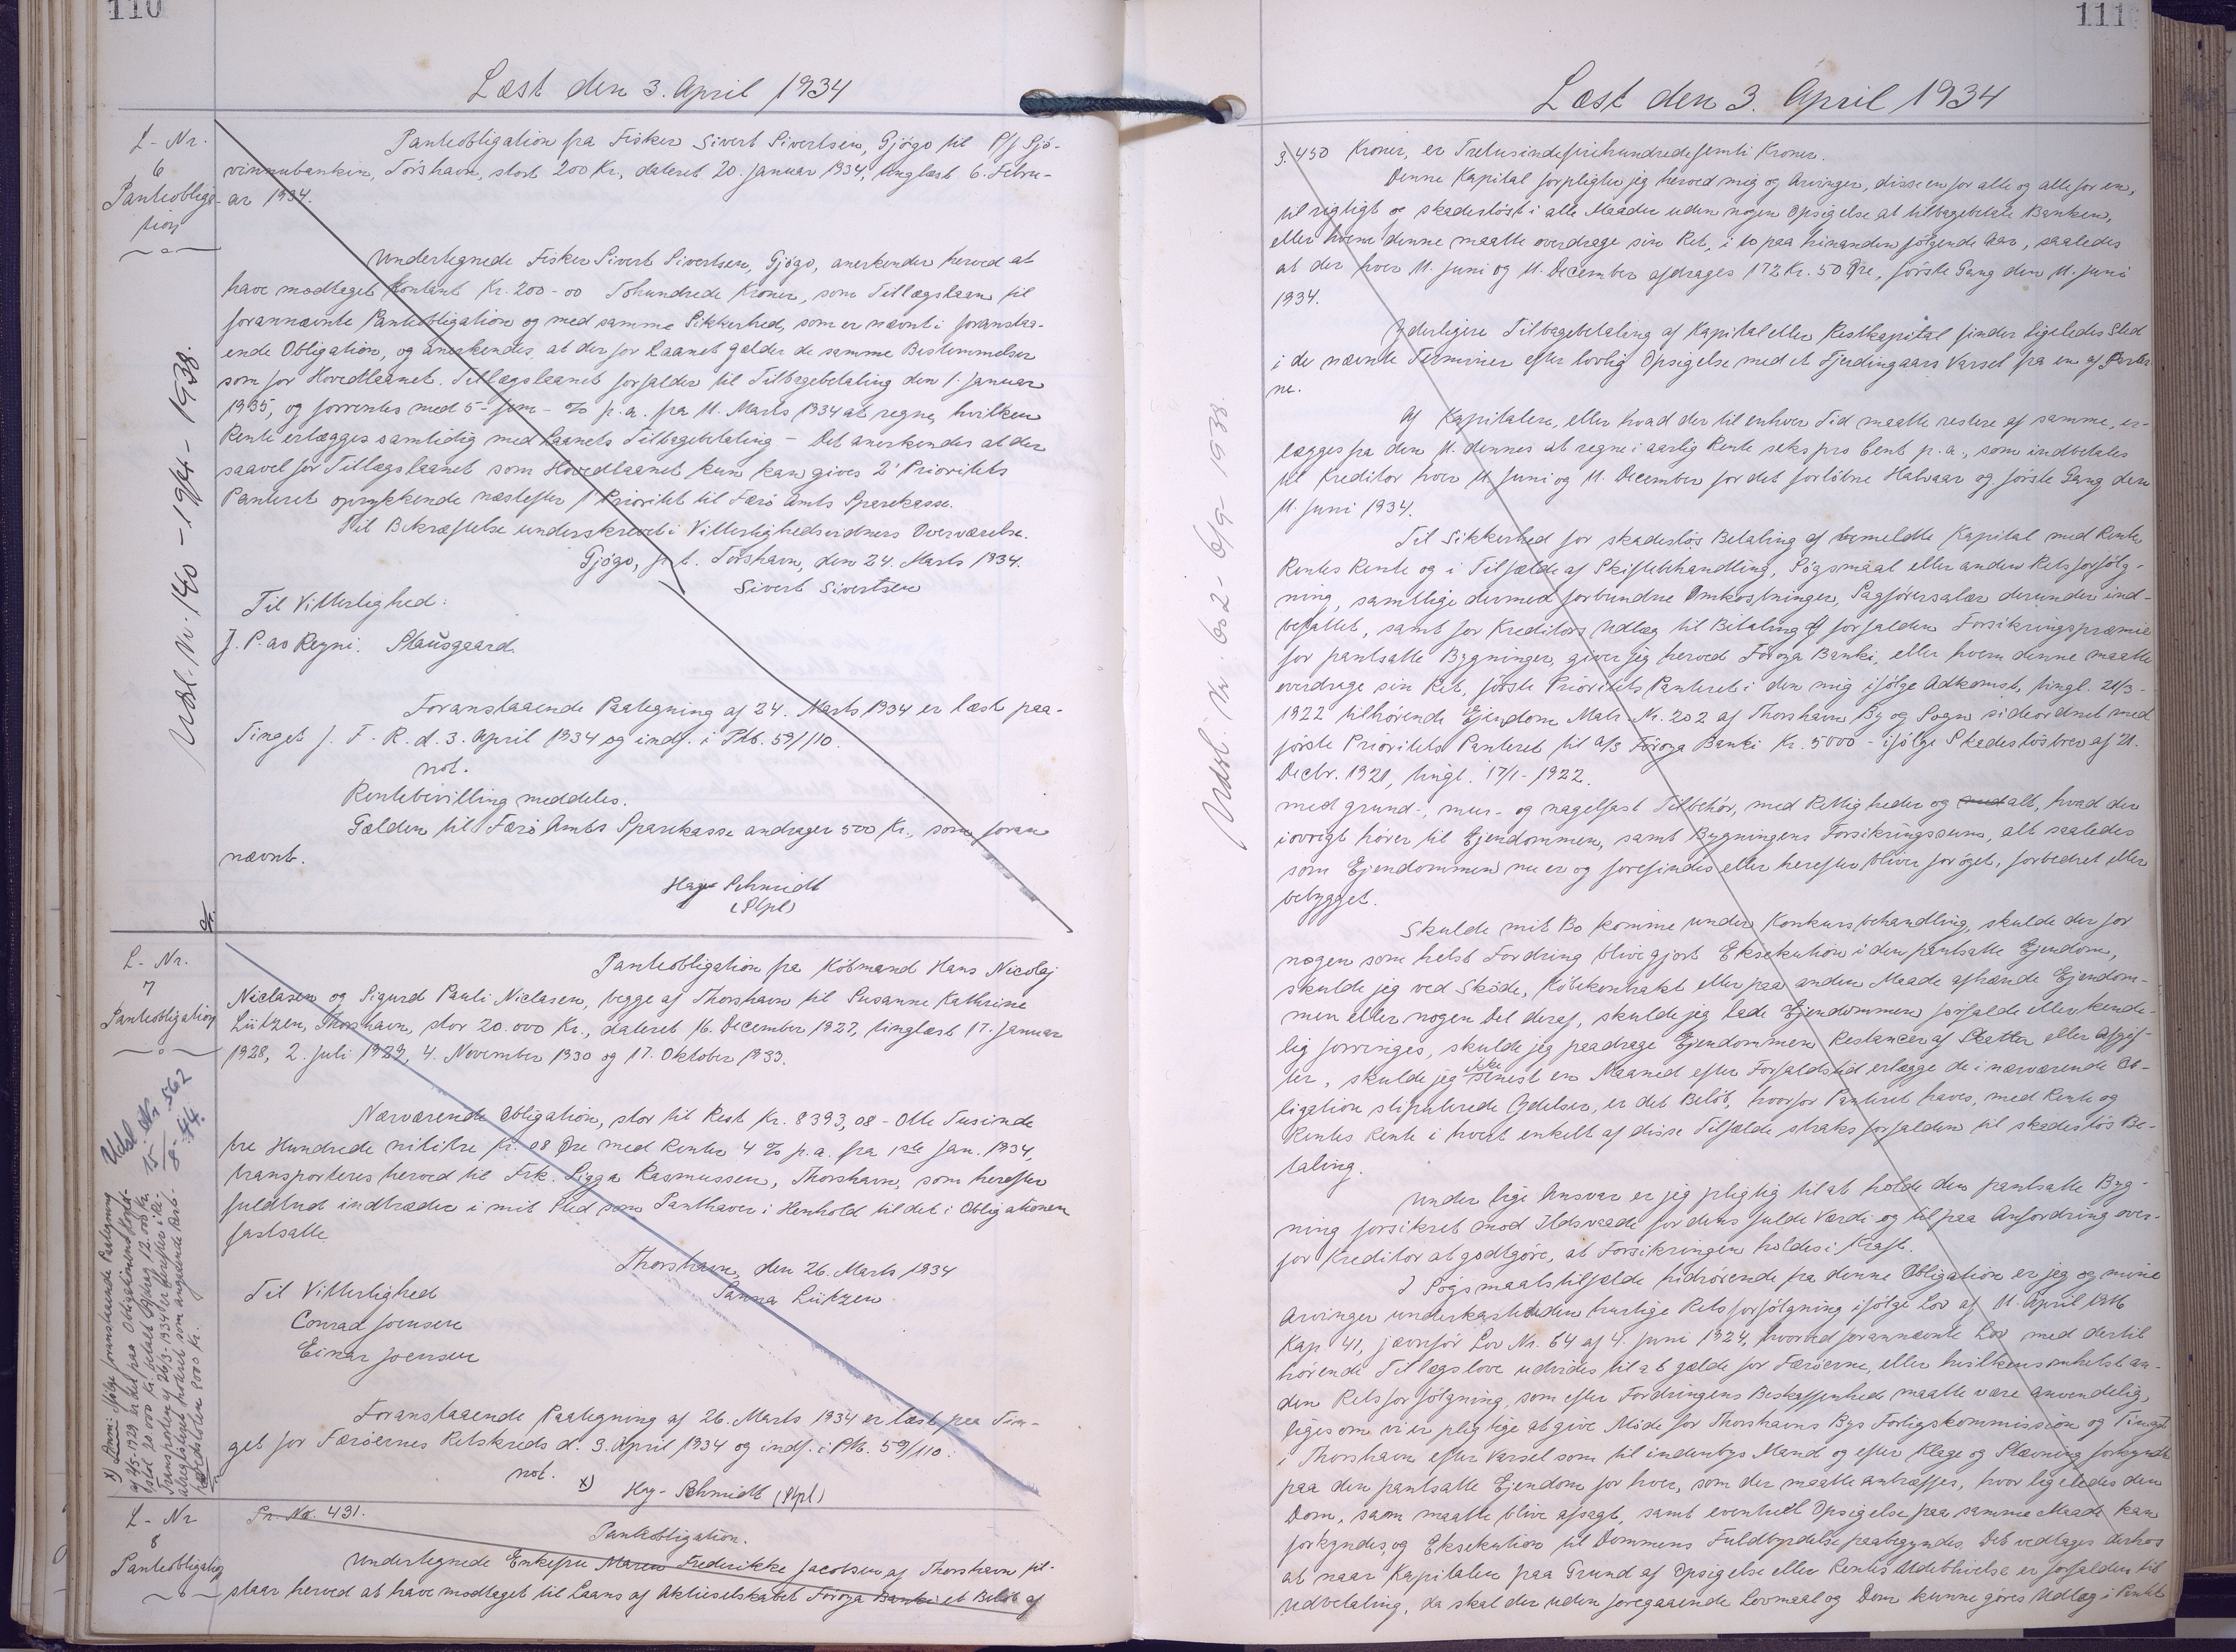 110
Læst den 3. April 1934
L-Nr.
6
Panteobliga-
tion
Panteobligation fra Fisker Sivert Sivertsen, Gjógv til P/f Sjó-
vinnubankin, Tórshavn, stort 200 Kr., dateret 20. Januar 1934, tinglæst 6. Febru-
ar 1934.
Undertegnede Fisker Sivert Sivertsen, Gjógv, anerkender herved at
have modtaget Kontant Kr. 200-00 Tohundrede Kroner, som Tillægslaan til
forannævnte Panteobligation og med samme Sikkerhed, som er nævnt i foranstaa-
ende Obligation, og anerkendes, at der for Laanet gælder de samme Bestemmelser
som for Hovedlaanet. Tillægslaanet forfalder til Tilbagebetaling den 1. Januar
1935, og forrentes med 5 - fem - % p.a. fra 11. Marts 1934 at regne, hvilken
Rente erlægges samtidig med Laanets Tilbagebetaling - Det anerkendes at der
saavel for Tillægslaanet som Hovedlaanet kun kan gives 2' Prioritets
Panteret oprykkende næstefter 1' Prioritet til Færø Amts Sparekasse.
Til Bekræftelse underskrevet i Vitterlighedsvidners Overværelse.
Gjógv, p.t. Tórshavn, den 24. Marts 1934.
Sivert Sivertsen
Til Vitterlighed:
J. P. av Reyni. Stausgaard.
Foranstaaende Paategning af 24. Marts 1934 er læst paa
Tinget f. F. R. d. 3. April 1934 og indf. i Ptb. 59/110.
not.
Rentebevilling meddeles.
Gælden til Færø Amts Sparekasse andrager 500 Kr., som foran
nævnt.
Hay-Schmidt
(Stpl)
Udsl. Nr. 140 - 19/4 - 1938.
L-Nr.
7
Panteobligation
Panteobligation fra Købmand Hans Nicolaj
Niclasen og Sigurd Pauli Niclasen, begge af Thorshavn til Susanne Kathrine
Lützen, Thorshavn, stor 20.000 Kr., dateret 16. December 1927, tinglæst 17. Januar
1928, 2. Juli 1929, 4. November 1930 og 17. Oktober 1933.
Nærværende Obligation, stor til Rest Kr. 8393,08 - Otte Tusinde
tre Hundrede nititre Kr. 08 Øre med Renter 4 % p.a. fra 1ste Jan. 1934,
transporteres herved til Frk. Sigga Rasmussen, Thorshavn, som herefter
fuldtud indtræder i mit Sted som Panthaver i Henhold til det i Obligationen
fastsatte
Thorshavn, den 26. Marts 1934
Sanna Lützen
Til Vitterlighed
Conrad Joensen
Einar Joensen
Foranstaaende Paategning af 26. Marts 1934 er læst paa Tin-
get for Færøernes Retskreds d. 3. April 1934 og indf. i Ptb. 59/110.
not.
x) Hay-Schmidt (Stpl)
Udsl. Nr. 562
15/8-44.
x) Ifølge foranstaaende Paategning
L-Nr
8
Panteobligation
Pr. Nr. 431.
Panteobligation.
Undertegnede Enkefru Maren Frederikke Jacobsen af Thorshavn til-
staar herved at have modtaget til Laans af Aktieselskabet Føroya Banki et Beløb af
111
Læst den 3. April 1934
3.450 Kroner, er Tretusindefirehundredefemti Kroner.
Denne Kapital forpligter jeg herved mig og Arvinger, disse en for alle og alle for en,
til rigtigt og skadesløst i alle Maader uden nogen Opsigelse at tilbagebetale Banken,
eller hvem denne maatte overdrage sin Ret, i 10 paa hinanden følgende Aar, saaledes
at der hver 11. Juni og 11. December afdrages 172 Kr. 50 Øre, første Gang den 11. Juni
1934.
Yderligere Tilbagebetaling af Kapital eller Restkapital finder ligeledes Sted
i de nævnte Terminer efter lovlig Opsigelse med et Fjerdingaars Varsel fra en af Parter-
ne.
Af Kapitalen, eller hvad der til enhver Tid maatte restere af samme, er-
lægges fra den 11. dennes at regne i aarlig Rente seks pro Cent p.a., som indbetales
til Kreditor hver 11. Juni og 11. December for det forløbne Halvaar og første Gang den
11. Juni 1934.
Til Sikkerhed for skadesløs Betaling af bemeldte Kapital med Rente,
Rentes Rente og i Tilfælde af Skiftebehandling, Søgsmaal eller anden Retsforfølg-
ning, samtlige dermed forbundne Omkostninger, Sagførersalær derunder ind-
befattet, samt for Kreditors Udlæg til Betaling af forfalden Forsikringspræmie
for pantsatte Bygninger, giver jeg herved Føroya Banki, eller hvem denne maatte
overdrage sin Ret, første Prioritets Panteret i den mig ifølge Adkomst, tingl. 21/3-
1922 tilhørende Ejendom Matr. Nr. 202 af Thorshavn By og Sogn sideordnet med
første Prioritets Panteret til A/S Føroya Banki Kr. 5000 - ifølge Skadesløsbrev af 21.
Decbr. 1921, tingl. 17/1-1922.
med grund-, mur- og nagelfast Tilbehør, med Rettigheder og med alt, hvad der
iøvrigt hører til Ejendommen, samt Bygningens Forsikringssum, alt saaledes
som Ejendommen nu er og forefindes eller herefter bliver forøget, forbedret eller
bebygget.
Skulde mit Bo komme under Konkursbehandling, skulde der for
nogen som helst Fordring blive gjort Eksekution i den pantsatte Ejendom,
skulde jeg ved Skøde, Købekontrakt eller paa anden Maade afhænde Ejendom-
men eller nogen Del deraf, skulde jeg lade Ejendommen forfalde eller kende-
lig forringes, skulde jeg paadrage Ejendommen Restancer af Skatter eller Afgif-
ter, skulde jeg ikke senest en Maaned efter Forfaldstid erlægge de i nærværende Ob-
ligation stipulerede Ydelser, er det Beløb, hvorfor Panteret haves, med Rente og
Rentes Rente i hvert enkelt af disse Tilfælde straks forfalden til skadesløs Be-
taling.
Under lige Ansvar er jeg pligtig til at holde den pantsatte Byg-
ning forsikret mod Ildsvaade for dens fulde Værdi og til paa Anfordring over-
for Kreditor at godtgøre, at Forsikringen holdes i Kraft.
I Søgsmaalstilfælde hidrørende fra denne Obligation er jeg og mine
Arvinger underkastet den hurtige Retsforfølgning ifølge Lov af 11. April 1916
Kap 41, jævnfør Lov Nr. 64 af 4. Juni 1924, hvorved forannævnte Lov med dertil
hørende Tillægslove udvides til at gælde for Færøerne, eller hvilkensomhelst an-
den Retsforfølgning, som efter Fordringens Beskaffenhed maatte være anvendelig,
ligesom vi er pligtige at give Møde for Thorshavns Bys Forligskommission og Tinget
i Thorshavn efter Varsel som til indenbys Mand og efter Klage og Stævning forkyndt
paa den pantsatte Ejendom for hver, som der maatte antræffes, hvor ligeledes den
Dom, som maatte blive afsagt, samt eventuel Opsigelse paa samme Maade kan
forkyndes, og Eksekution til Dommens Fuldbyrdelse paabegyndes. Det vedtages derhos
at naar Kapitalen paa Grund af Opsigelse eller Rentes Udeblivelse er forfalden til
Udbetaling, da skal der uden foregaaende Lovmaal og Dom kunne gøres Udlæg i Pantet
Udsl. Nr. 602 - 6/9 - 1938.